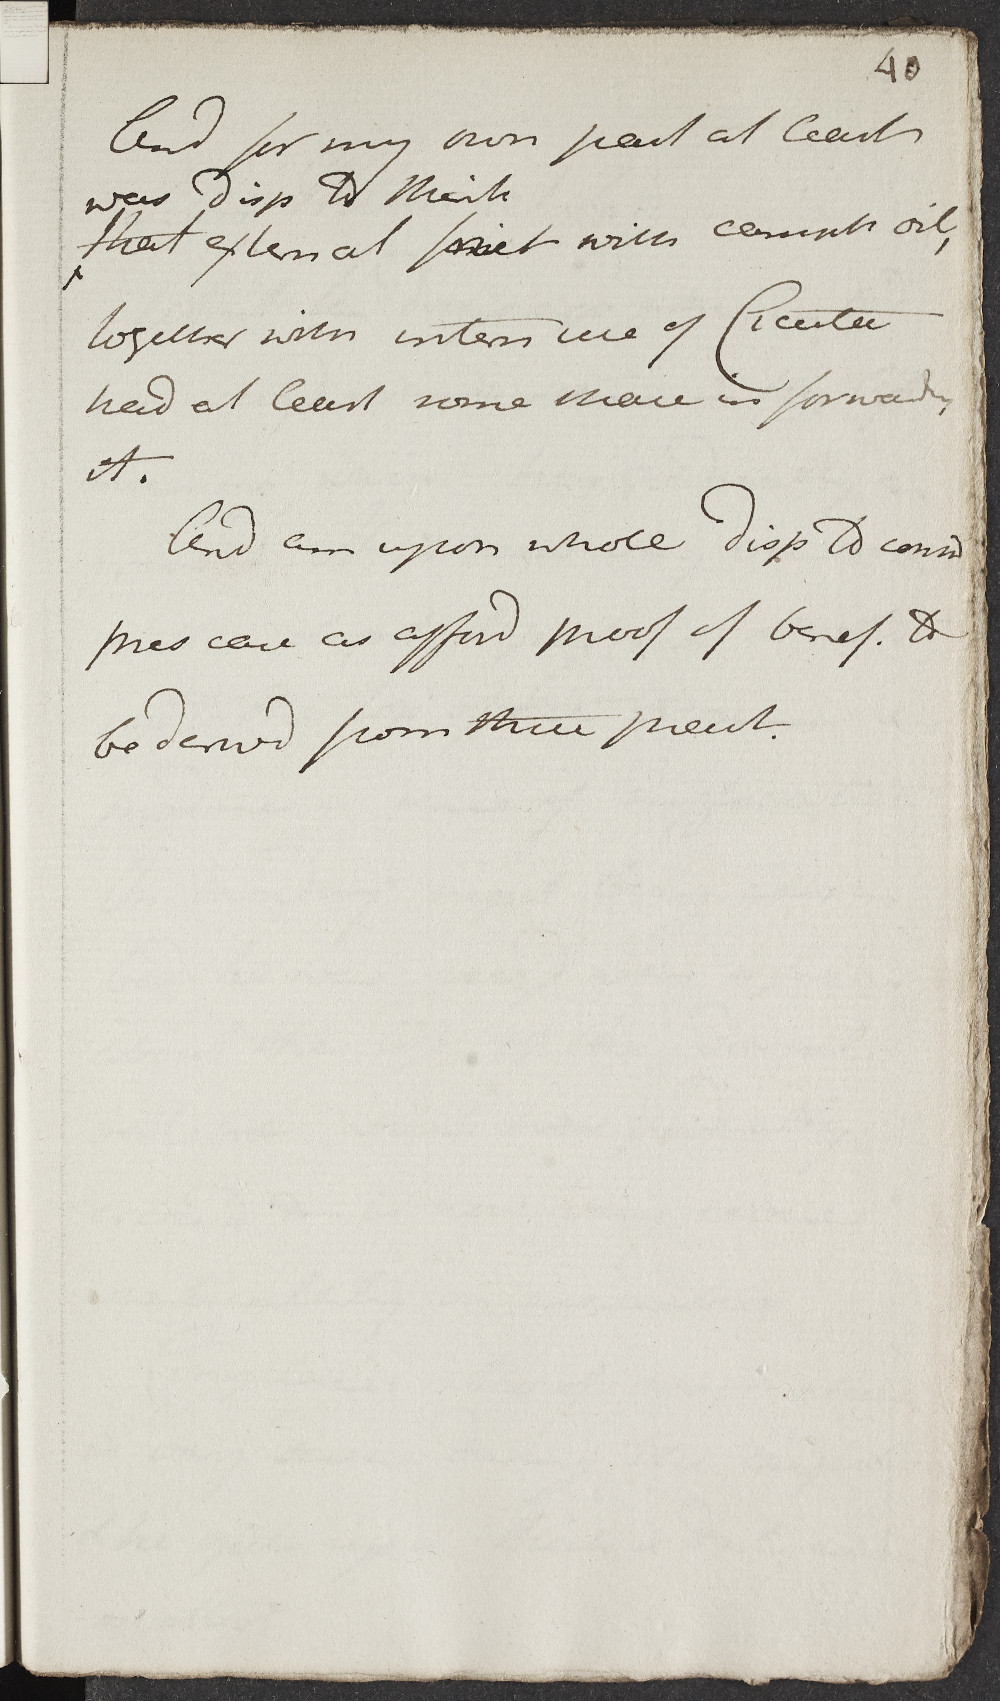 40
And for my own part at least
was disp to think
that external frict with camph oil,
together with intern use of Cicuta
had at least some share in forwardg
it.
And am upon whole disp to consid
pres case as afford proof of benef. to
be derived from these pract.